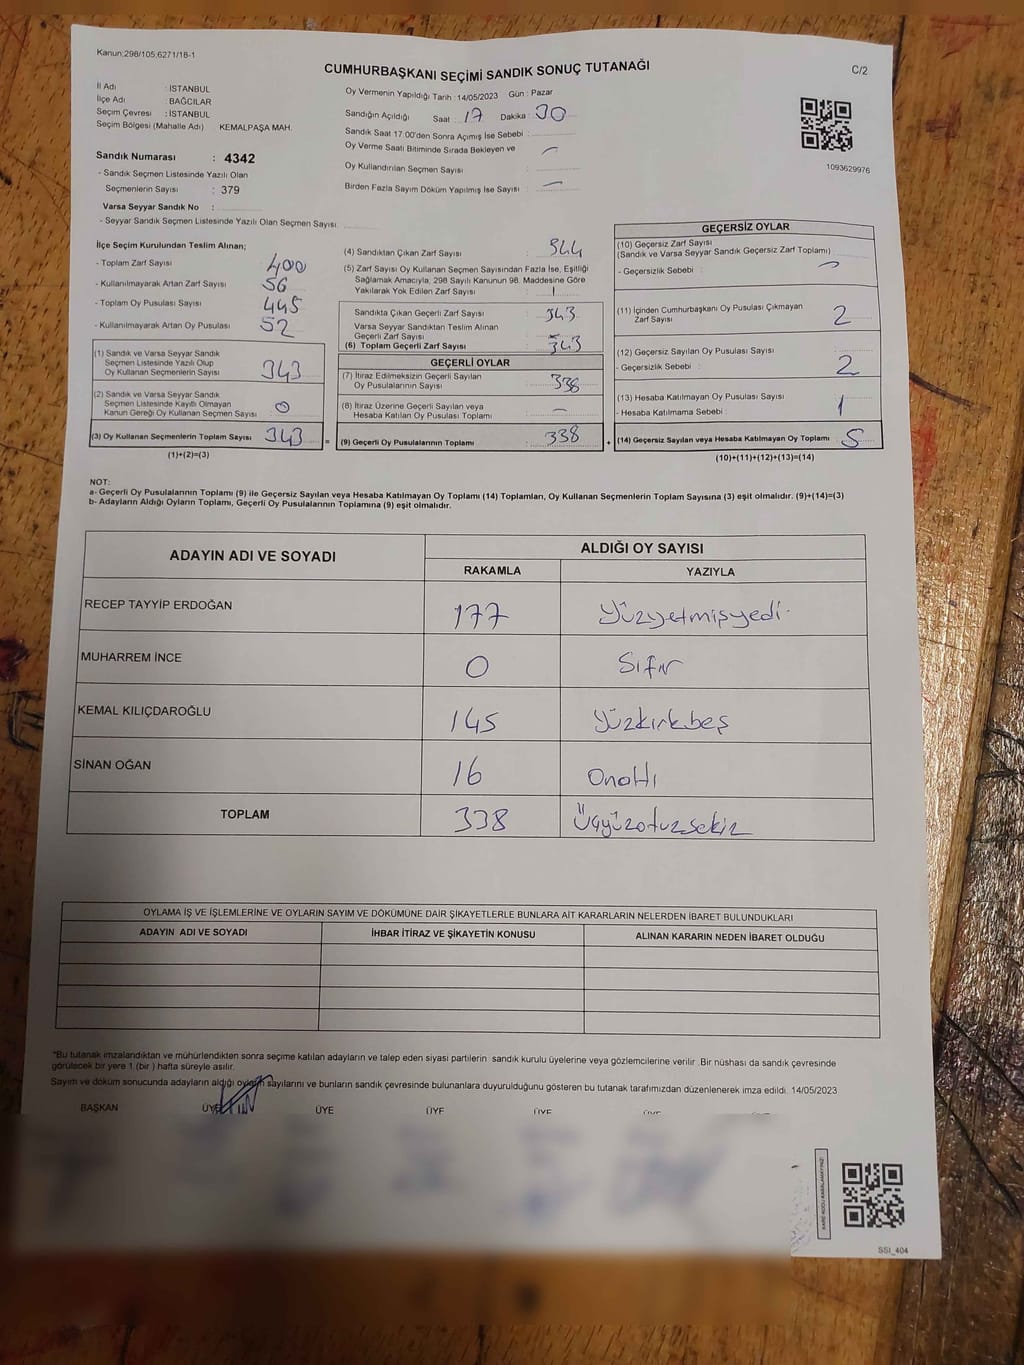 Kanun:298/105;6271/18-1
CUMHURBAŞKANI SEÇİMİ SANDIK SONUÇ TUTANAĞI
C/2
İl Adı : İSTANBUL
İlçe Adı : BAĞCILAR
Seçim Çevresi : İSTANBUL
Seçim Bölgesi (Mahalle Adı) KEMALPAŞA MAH.
Sandık Numarası : 4342
- Sandık Seçmen Listesinde Yazılı Olan
Seçmenlerin Sayısı : 379
Varsa Seyyar Sandık No :
- Seyyar Sandık Seçmen Listesinde Yazılı Olan Seçmen Sayısı:
Oy Vermenin Yapıldığı Tarih : 14/05/2023 Gün : Pazar
Sandığın Açıldığı Saat : 17 Dakika : 30
Sandık Saat 17.00'den Sonra Açımış İse Sebebi :
Oy Verme Saati Bitiminde Sırada Bekleyen ve
Oy Kullandırılan Seçmen Sayısı :
Birden Fazla Sayım Döküm Yapılmış İse Sayısı :
1093629976
İlçe Seçim Kurulundan Teslim Alınan;
- Toplam Zarf Sayısı : 400
- Kullanılmayarak Artan Zarf Sayısı : 56
- Toplam Oy Pusulası Sayısı : 445
- Kullanılmayarak Artan Oy Pusulası : 52
(1) Sandık ve Varsa Seyyar Sandık
Seçmen Listesinde Yazılı Olup
Oy Kullanan Seçmenlerin Sayısı : 343
(2) Sandık ve Varsa Seyyar Sandık
Seçmen Listesinde Kayıtlı Olmayan
Kanun Gereği Oy Kullanan Seçmen Sayısı : 0
(3) Oy Kullanan Seçmenlerin Toplam Sayısı : 343
(1)+(2)=(3)
(4) Sandıktan Çıkan Zarf Sayısı : 344
(5) Zarf Sayısı Oy Kullanan Seçmen Sayısından Fazla İse, Eşitliği
Sağlamak Amacıyla; 298 Sayılı Kanunun 98. Maddesine Göre
Yakılarak Yok Edilen Zarf Sayısı : 1
Sandıkta Çıkan Geçerli Zarf Sayısı : 343
Varsa Seyyar Sandıktan Teslim Alınan
Geçerli Zarf Sayısı :
(6) Toplam Geçerli Zarf Sayısı : 343
GEÇERLİ OYLAR
(7) İtiraz Edilmeksizin Geçerli Sayılan
Oy Pusulalarının Sayısı : 338
(8) İtiraz Üzerine Geçerli Sayılan veya
Hesaba Katılan Oy Pusulası Toplamı :
= (9) Geçerli Oy Pusulalarının Toplamı : 338
GEÇERSİZ OYLAR
(10) Geçersiz Zarf Sayısı
(Sandık ve Varsa Seyyar Sandık Geçersiz Zarf Toplamı)
- Geçersizlik Sebebi :
(11) İçinden Cumhurbaşkanı Oy Pusulası Çıkmayan
Zarf Sayısı : 2
(12) Geçersiz Sayılan Oy Pusulası Sayısı : 2
- Geçersizlik Sebebi :
(13) Hesaba Katılmayan Oy Pusulası Sayısı : 1
- Hesaba Katılmama Sebebi :
+ (14) Geçersiz Sayılan veya Hesaba Katılmayan Oy Toplamı : 5
(10)+(11)+(12)+(13)=(14)
NOT:
a- Geçerli Oy Pusulalarının Toplamı (9) ile Geçersiz Sayılan veya Hesaba Katılmayan Oy Toplamı (14) Toplamları, Oy Kullanan Seçmenlerin Toplam Sayısına (3) eşit olmalıdır. (9)+(14)=(3)
b- Adayların Aldığı Oyların Toplamı, Geçerli Oy Pusulalarının Toplamına (9) eşit olmalıdır.
ADAYIN ADI VE SOYADI
ALDIĞI OY SAYISI
RAKAMLA YAZIYLA
RECEP TAYYİP ERDOĞAN 177 Yüzyetmişyedi
MUHARREM İNCE 0 Sıfır
KEMAL KILIÇDAROĞLU 145 Yüzkırkbeş
SİNAN OĞAN 16 Onaltı
TOPLAM 338 Üçyüzotuzsekiz
OYLAMA İŞ VE İŞLEMLERİNE VE OYLARIN SAYIM VE DÖKÜMÜNE DAİR ŞİKAYETLERLE BUNLARA AİT KARARLARIN NELERDEN İBARET BULUNDUKLARI
ADAYIN ADI VE SOYADI İHBAR İTİRAZ VE ŞİKAYETİN KONUSU ALINAN KARARIN NEDEN İBARET OLDUĞU
*Bu tutanak imzalandıktan ve mühürlendikten sonra seçime katılan adayların ve talep eden siyasi partilerin sandık kurulu üyelerine veya gözlemcilerine verilir .Bir nüshası da sandık çevresinde
görülecek bir yere 1 (bir ) hafta süreyle asılır.
Sayım ve döküm sonucunda adayların aldığı oyların sayılarını ve bunların sandık çevresinde bulunanlara duyurulduğunu gösteren bu tutanak tarafımızdan düzenlenerek imza edildi. 14/05/2023
BAŞKAN ÜYE ÜYE ÜYE ÜYE ÜYE
KARE KODU KARALAMAYINIZ!
SSI_404